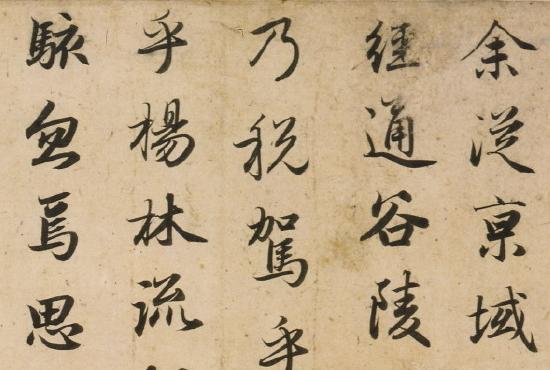 余從京域
經通谷陵
乃税駕乎
乎楊林流
駭忽焉思